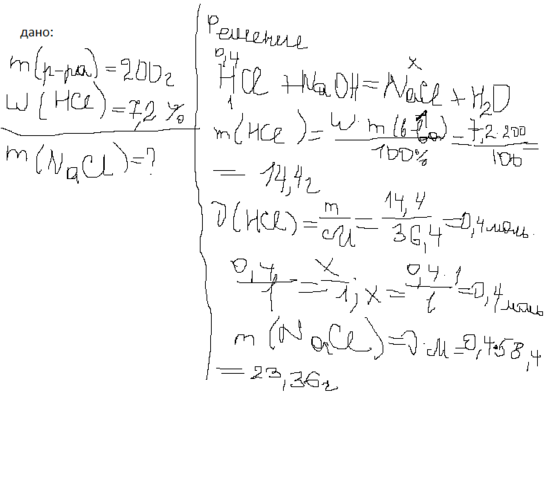 дано:
m(р-ра)=200г
W(HCl)=7,2%
m(NaCl)=?
Решение
0,4 x
HCl + NaOH = NaCl + H2O
1
m(HCl) = W·m(в-ва)/100% = 7,2·200/100 =
= 14,4г
ν(HCl) = m/M = 14,4/36,4 = 0,4 моль.
0,4/1 = x/1; x = 0,4·1/1 = 0,4 моль
m(NaCl) = ν·M = 0,4·58,4
= 23,36г